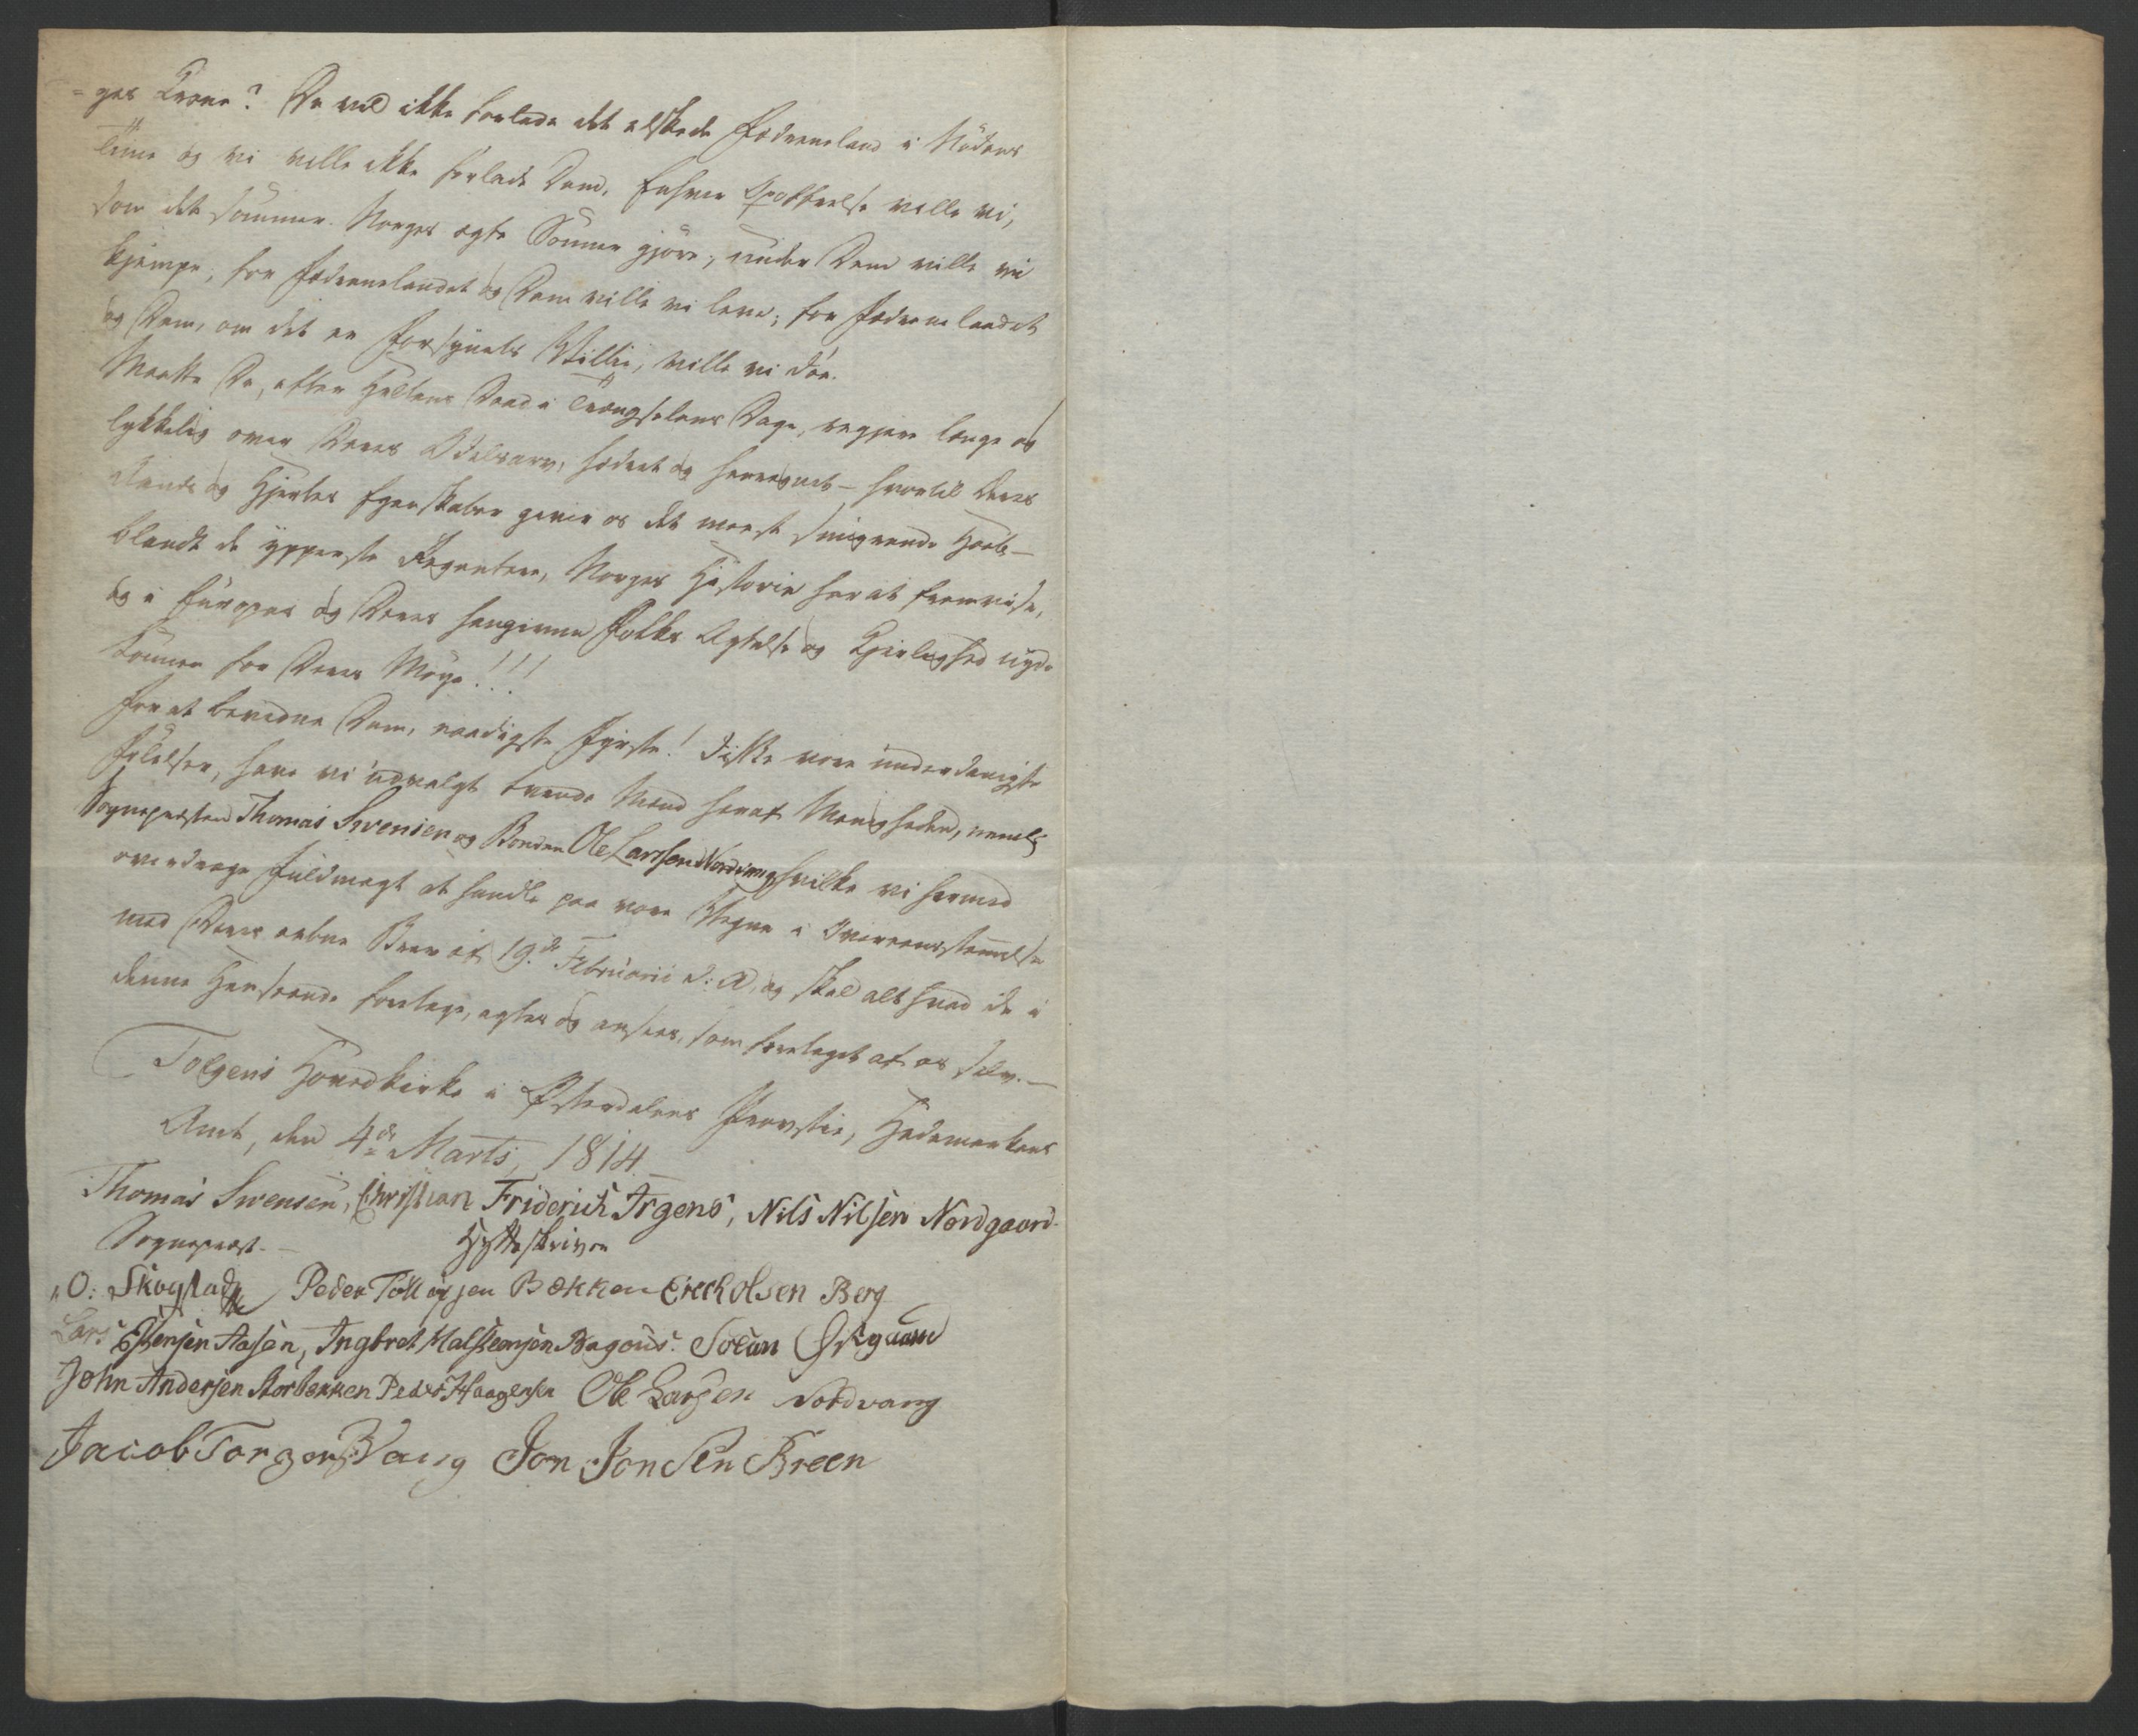 =ges Trone? De vil ikke forlade det elskede Fædreneland i Nødens
Time og vi ville ikke forlade Dem. Enhver Opofrelse ville vi,
som det sømmer Norges ægte Sønner gjøre; under Dem ville vi
kjempe, for Fædrenelandet og Dem ville vi leve; for Fædrenelandet
og Dem, om det er Forsynets Villie, ville vi døe.
Maatte De, efter Heltens Daad i Trængselens Dage, regjere længe og
lykkelig over Deres Odelsarv, hædret og  – hvortil Deres
Aands og Hjertes Egenskaber giver os det meest smigrende Haab –
blandt de ypperste Regentere, Norges Historie har at fremvise,
og i Europas og Deres hengivne Folks Agtelse og Kjerlighed nyde
Lønnen for Deres Møye!!!
For at bevidne Dem, naadigste Fyrste! disse vore underdanigste
Følelser, have vi udvalgt tvende Mænd heraf Menigheden, nemlig
Sognepræsten Thomas Swensen og Bonden Ole Larssen Nordvang, hvilke vi hermed
overdrage Fuldmagt at handle paa vore Vegne i Overeensstemmelse
med Deres aabne Brev af 19.de Februarii d: A, og skal alt hvad de i
denne Henseende foretage, agtes og ansees, som foretaget af os selv. –
Tolgens Hovedkirke i Østerdalens Provstie, Hedemarkens
Amt, den 4de Marts, 1814.
Thomas Swensen, Christian Friderich Irgens, Nils Nilsen Nordgaard
Sognepræst. – Hytteskriver
O: Skogstad Peder Tollefsen Bækken Erech Olsen Berg
Lars Estensen Aasen, Ingbret Halstensen Bagous. Joean Østgaard
John Andersen Storbekken Peder Haagensen Ole Larsen Nordvang
Jacob Torgers Vang Jon Jonsen Breen